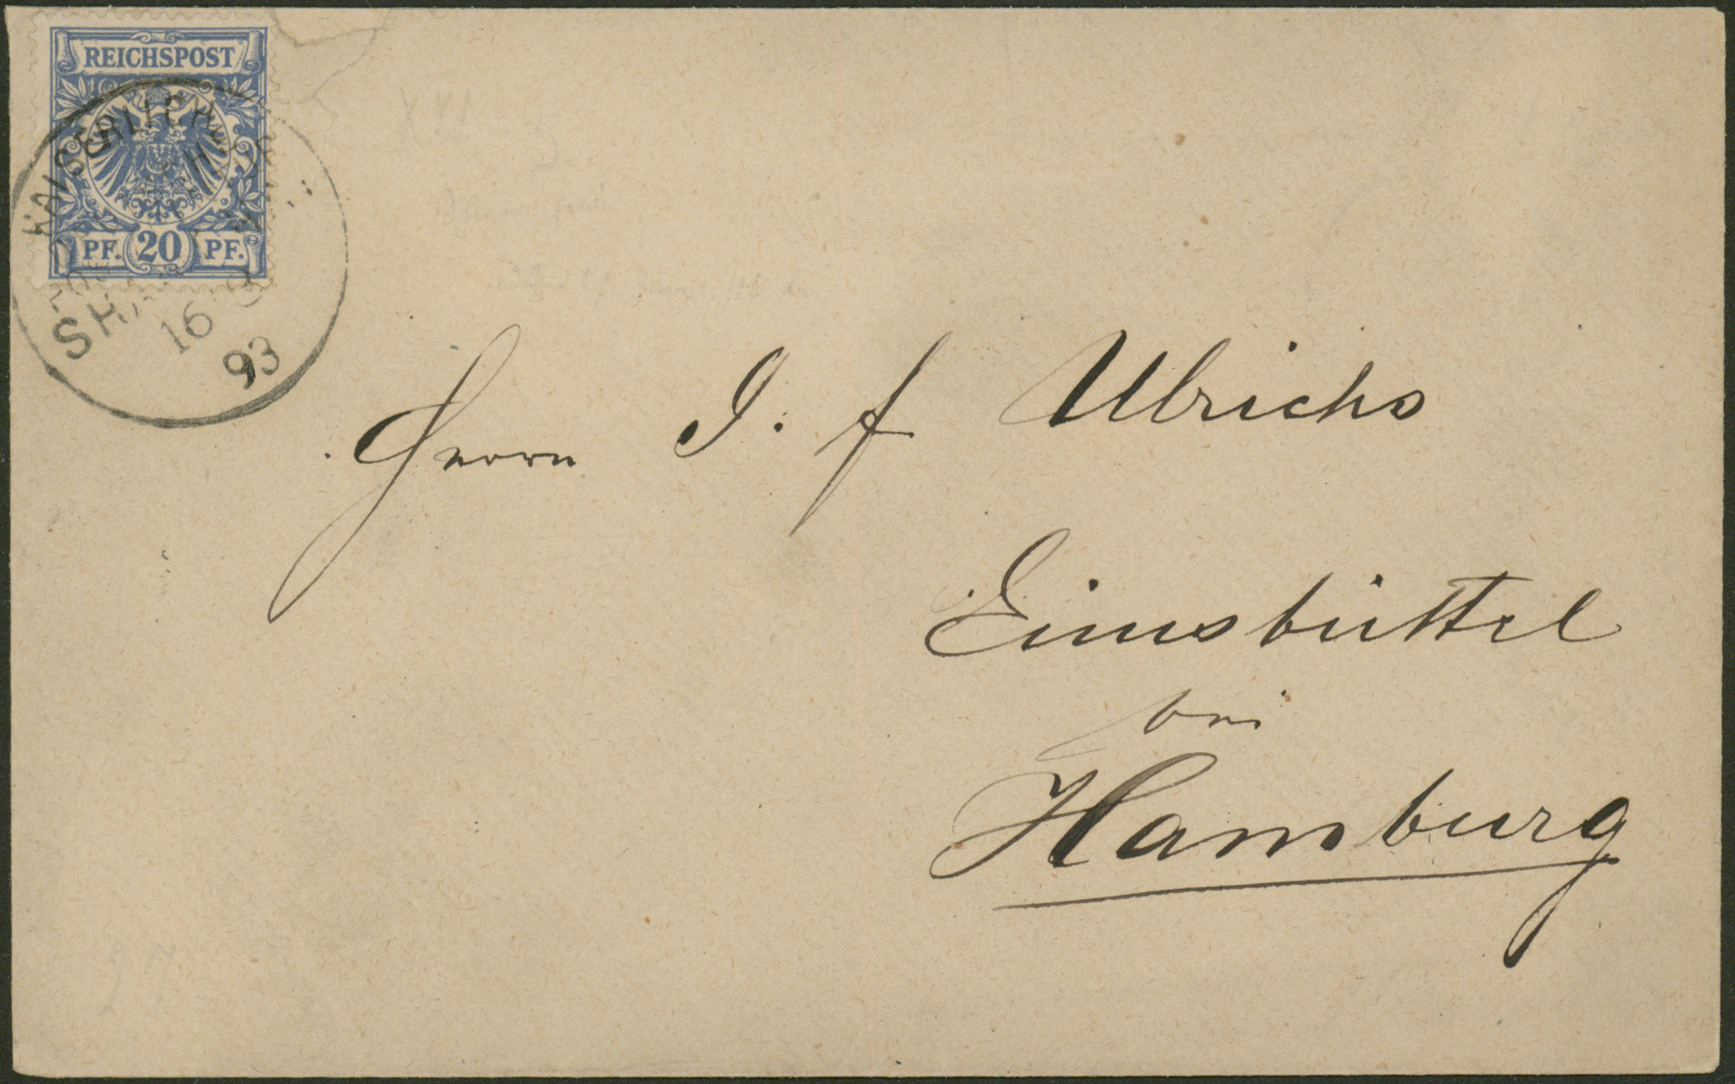 REICHSPOST
PF. 20 PF.
KAISERLICH
16
93
Herrn J. F Ulrichs
Eimsbüttel
bei
Hamburg